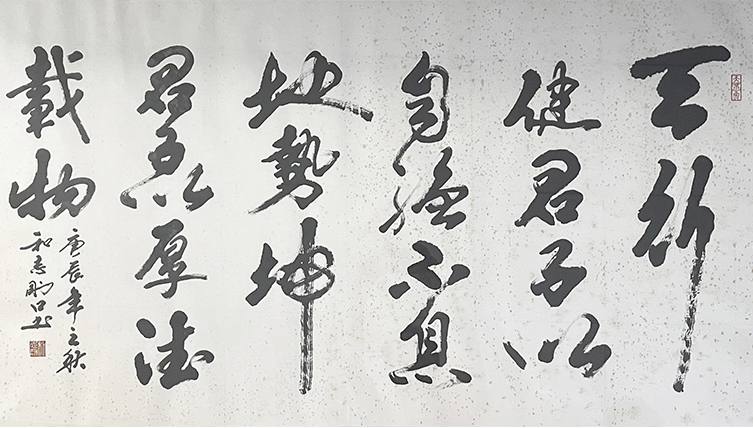 天行
健君子以
自强不息
地勢坤
君子以厚德
載物
庚辰年之秋
和志刚口书